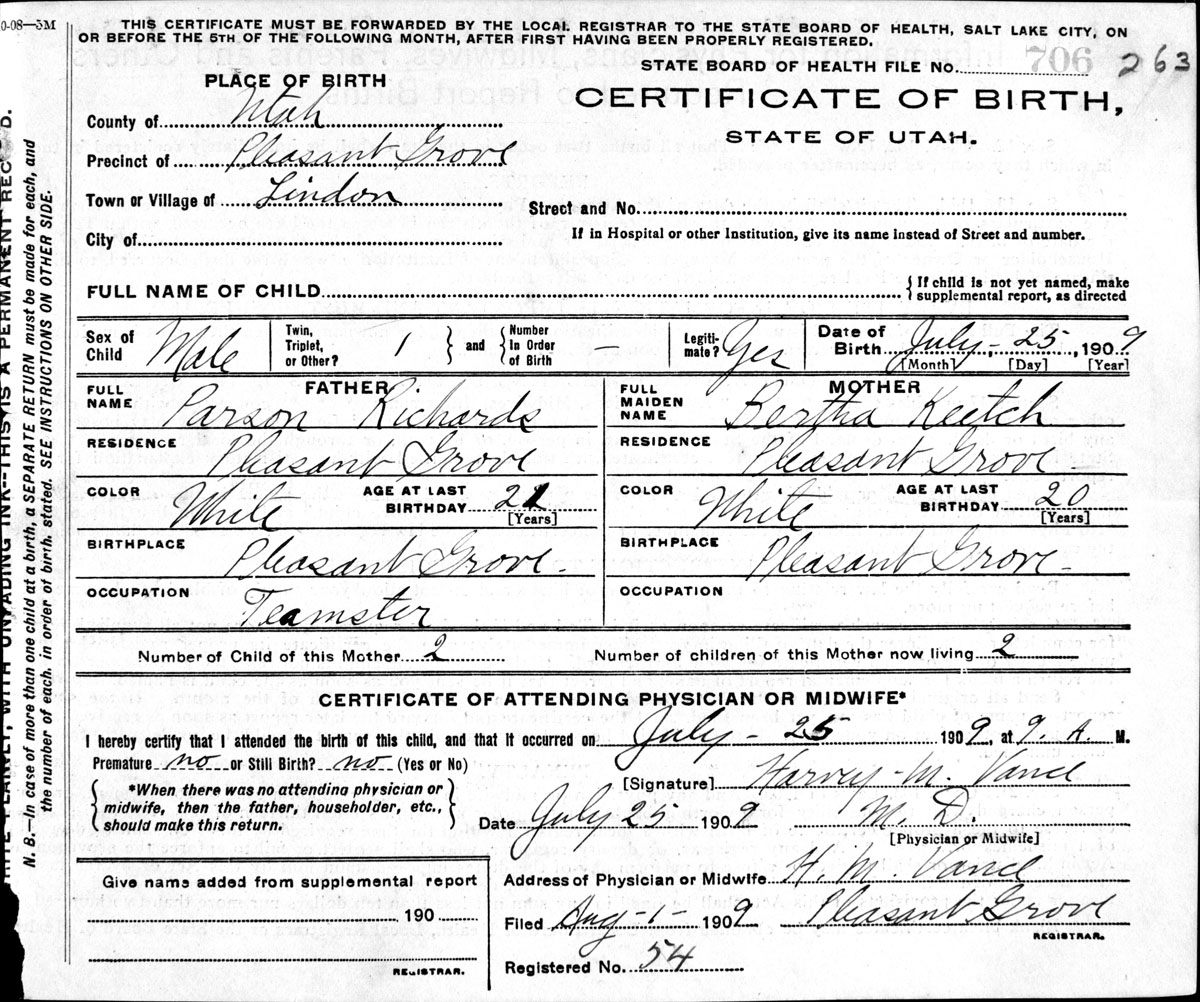 0-08—5M
THIS CERTIFICATE MUST BE FORWARDED BY THE LOCAL REGISTRAR TO THE STATE BOARD OF HEALTH, SALT LAKE CITY, ON
OR BEFORE THE 5TH OF THE FOLLOWING MONTH, AFTER FIRST HAVING BEEN PROPERLY REGISTERED.
STATE BOARD OF HEALTH FILE NO. 706 263
PLACE OF BIRTH
CERTIFICATE OF BIRTH,
STATE OF UTAH.
County of Utah
Precinct of Pleasant Grove
Town or Village of Lindon
Street and No.
City of
If in Hospital or other Institution, give its name instead of Street and number.
FULL NAME OF CHILD
{ If child is not yet named, make
supplemental report, as directed
Sex of Child Male
Twin, Triplet, or Other? 1
} and {
Number In Order of Birth —
Legiti-mate? Yes
Date of Birth July - 25, 1909
[Month] [Day] [Year]
FATHER
FULL NAME Parson Richards
MOTHER
FULL MAIDEN NAME Bertha Keetch
RESIDENCE Pleasant Grove
RESIDENCE Pleasant Grove
COLOR White AGE AT LAST BIRTHDAY 21 [Years]
COLOR White AGE AT LAST BIRTHDAY 20 [Years]
BIRTHPLACE Pleasant Grove -
BIRTHPLACE Pleasant Grove -
OCCUPATION Teamster
OCCUPATION
Number of Child of this Mother 2
Number of children of this Mother now living 2
CERTIFICATE OF ATTENDING PHYSICIAN OR MIDWIFE*
I hereby certify that I attended the birth of this child, and that it occurred on July - 25 1909, at 9. A. M.
Premature no or Still Birth? no (Yes or No)
[Signature] Harvey M. Vance
{ *When there was no attending physician or
midwife, then the father, householder, etc.,
should make this return. }
Date July 25 1909 M. D.
[Physician or Midwife]
Address of Physician or Midwife H. M. Vance
Filed Aug - 1 - 1909 Pleasant Grove
REGISTRAR.
Registered No. 54
Give name added from supplemental report
190
REGISTRAR.
PLAINLY, WITH UNFADING INK—THIS IS A PERMANENT RECORD.
N. B.—In case of more than one child at a birth, a SEPARATE RETURN must be made for each, and
the number of each, in order of birth, stated. SEE INSTRUCTIONS ON OTHER SIDE.